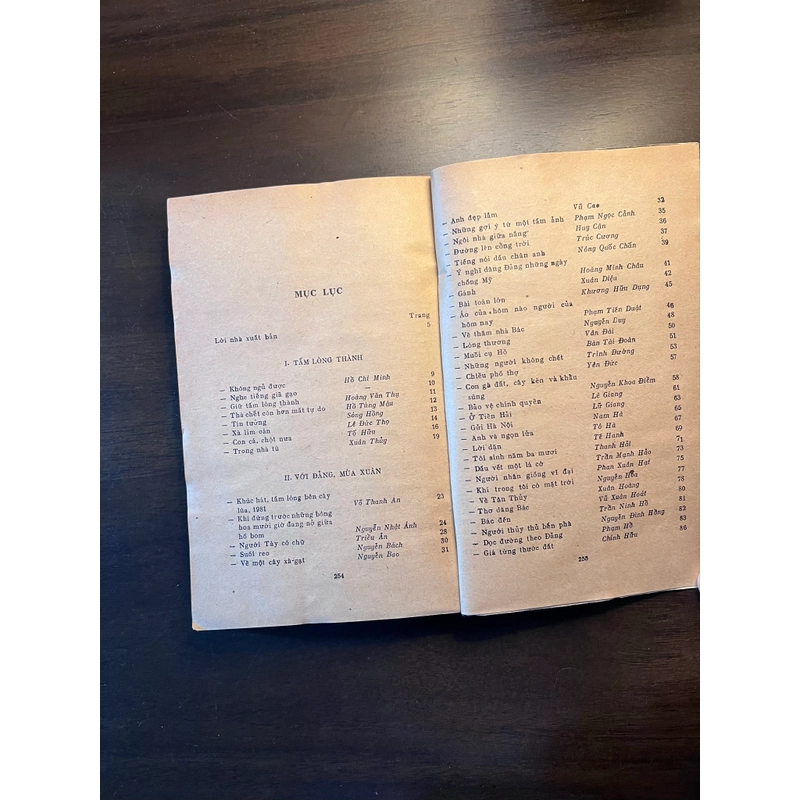 MỤC LỤC
Trang
Lời nhà xuất bản 5
I. TẤM LÒNG THÀNH
— Không ngủ được Hồ Chí Minh 9
— Nghe tiếng giã gạo — 10
— Giữ tấm lòng thành Hoàng Văn Thụ 11
— Thà chết còn hơn mất tự do Hồ Tùng Mậu 12
— Tin tưởng Sóng Hồng 13
— Xà lim oán Lê Đức Thọ 14
— Con cá, chột nưa Tố Hữu 16
— Trong nhà tù Xuân Thủy 19
II. VỚI ĐẢNG, MÙA XUÂN
— Khúc hát, tấm lòng bên cây
lúa, 1981 Võ Thanh An 23
— Khi đứng trước những bông
hoa mười giờ đang nở giữa
hố bom Nguyễn Nhật Ánh 24
— Người Tày có chữ Triều Ân 28
— Suối reo Nguyễn Bách 30
— Về một cây xà-gạt Nguyễn Bao 31
254
— Anh đẹp lắm Vũ Cao 32
— Những gợi ý từ một tấm ảnh Phạm Ngọc Cảnh 35
— Ngôi nhà giữa nắng Huy Cận 36
— Đường lên cổng trời Trúc Cương 37
— Tiếng nói dấu chân anh Nông Quốc Chấn 39
— Ý nghĩ dâng Đảng những ngày
chống Mỹ Hoàng Minh Châu 41
— Gánh Xuân Diệu 42
— Bài toán lớn Khương Hữu Dụng 45
— Áo của hôm nào người của
hôm nay Phạm Tiến Duật 46
— Về thăm nhà Bác Nguyễn Duy 48
— Lòng thương Vân Đài 50
— Muối cụ Hồ Bàn Tài Đoàn 51
— Những người không chết Trinh Đường 53
— Chiều phố thợ Yên Đức 57
— Con gà đất, cây kèn và khẩu
súng Nguyễn Khoa Điềm 58
— Bảo vệ chính quyền Lê Giang 61
— Ở Tiền Hải Lữ Giang 63
— Gửi Hà Nội Nam Hà 65
— Anh và ngọn lửa Tố Hà 67
— Lời dặn Tế Hanh 69
— Tôi sinh năm ba mươi Thanh Hải 71
— Dấu vết một lá cờ Trần Mạnh Hảo 73
— Người nhân giống vĩ đại Phan Xuân Hạt 75
— Khi trong tôi có mặt trời Nguyễn Hoa 77
— Về Tân Thủy Xuân Hoàng 78
— Thơ dâng Bác Vũ Xuân Hoát 80
— Bác đến Trần Ninh Hồ 81
— Người thủy thủ bến phà Nguyễn Đình Hồng 82
— Dọc đường theo Đảng Phạm Hổ 83
— Giá từng thước đất Chính Hữu 86
255